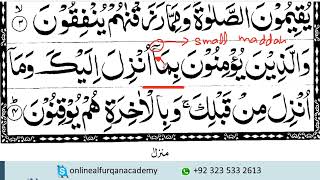 يُقِيْمُوْنَ الصَّلٰوةَ وَمِمَّا رَزَقْنٰهُمْ يُنْفِقُوْنَ ۙ﴿۳﴾
small maddah
وَالَّذِيْنَ يُؤْمِنُوْنَ بِمَاۤ اُنْزِلَ اِلَيْكَ وَمَاۤ
اُنْزِلَ مِنْ قَبْلِكَ ۚ وَبِالْاٰخِرَةِ هُمْ يُوْقِنُوْنَ ؕ﴿۴﴾
منزل
onlinealfurqanacademy +92 323 533 2613